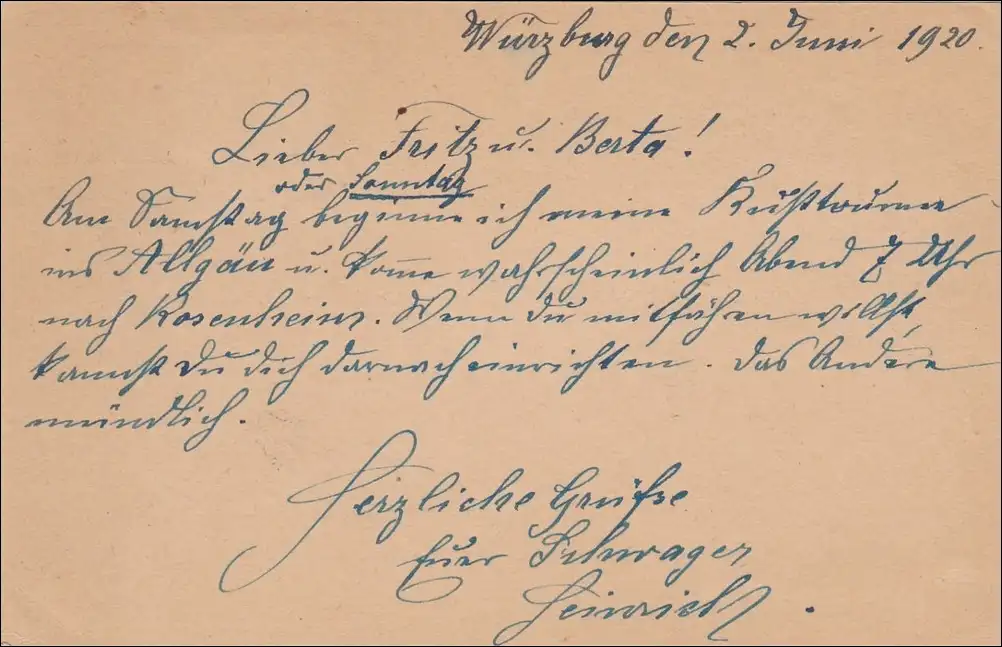 Würzburg den 2. Juni 1920.
Lieber Fritz u. Berta!
oder Sonntag
Am Samstag beginne ich meine
ins Allgäu u. kome wahrscheinlich Abend 7 Uhr
nach Rosenheim. Wenn du mitfahren willst,
kannst Du dich darnach einrichten. Das Andere
mündlich.
Herzliche Grüße
Euer Schwager
Heinrich.